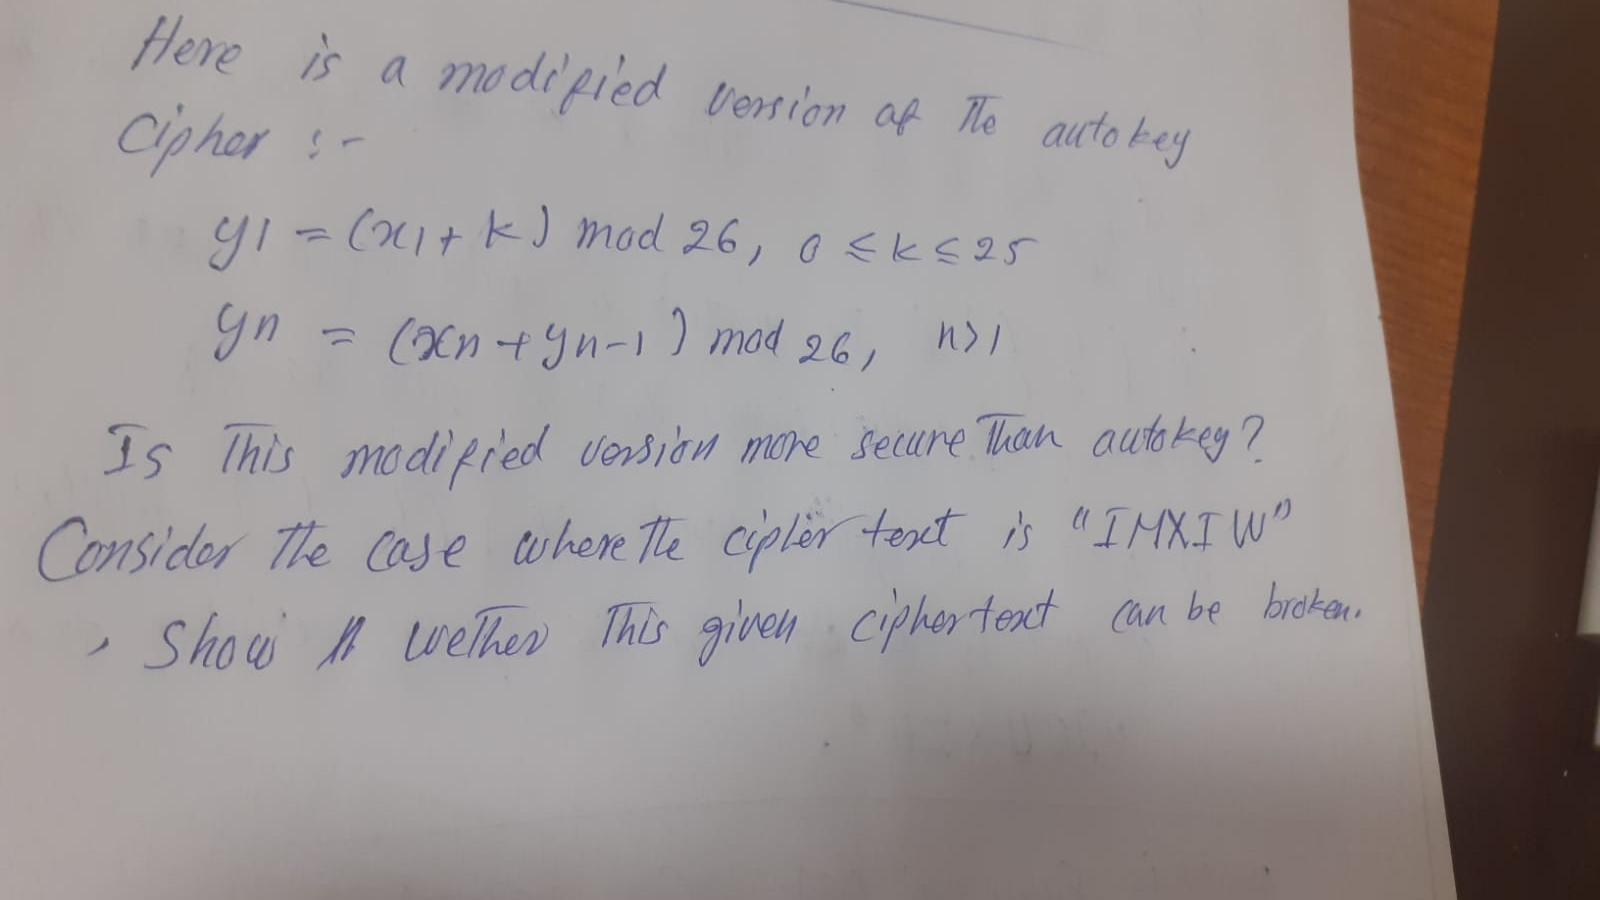 Here is a modified version of the autokey
Cipher :-
y1 = (x1 + k) mod 26, 0 ≤ k ≤ 25
yn = (xn + yn-1) mod 26, n>1
Is This modified version more secure Than autokey?
Consider The case where the cipher text is "IMXIW"
, Show wether This given ciphertext can be broken.